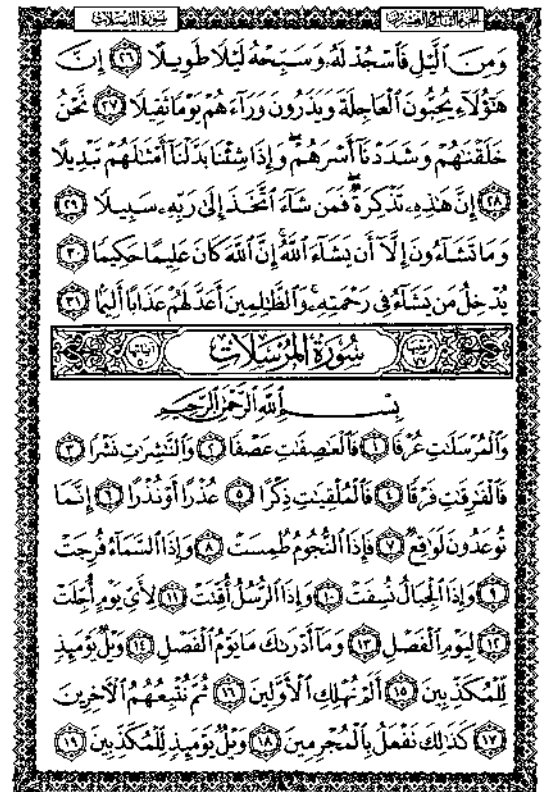 الجزء التاسع والعشرون سورة المرسلات
وَمِنَ ٱلَّيْلِ فَٱسْجُدْ لَهُۥ وَسَبِّحْهُ لَيْلًا طَوِيلًا ٢٦ إِنَّ
هَٰٓؤُلَآءِ يُحِبُّونَ ٱلْعَاجِلَةَ وَيَذَرُونَ وَرَآءَهُمْ يَوْمًا ثَقِيلًا ٢٧ نَّحْنُ
خَلَقْنَٰهُمْ وَشَدَدْنَآ أَسْرَهُمْ ۖ وَإِذَا شِئْنَا بَدَّلْنَآ أَمْثَٰلَهُمْ تَبْدِيلًا
٢٨ إِنَّ هَٰذِهِۦ تَذْكِرَةٌ ۖ فَمَن شَآءَ ٱتَّخَذَ إِلَىٰ رَبِّهِۦ سَبِيلًا ٢٩
وَمَا تَشَآءُونَ إِلَّآ أَن يَشَآءَ ٱللَّهُ ۚ إِنَّ ٱللَّهَ كَانَ عَلِيمًا حَكِيمًا ٣٠
يُدْخِلُ مَن يَشَآءُ فِى رَحْمَتِهِۦ ۚ وَٱلظَّٰلِمِينَ أَعَدَّ لَهُمْ عَذَابًا أَلِيمًا ٣١
ترتيبها ٧٧ سُورَةُ المُرْسَلَات آياتها ٥٠
بِسْمِ ٱللَّهِ ٱلرَّحْمَٰنِ ٱلرَّحِيمِ
وَٱلْمُرْسَلَٰتِ عُرْفًا ١ فَٱلْعَٰصِفَٰتِ عَصْفًا ٢ وَٱلنَّٰشِرَٰتِ نَشْرًا ٣
فَٱلْفَٰرِقَٰتِ فَرْقًا ٤ فَٱلْمُلْقِيَٰتِ ذِكْرًا ٥ عُذْرًا أَوْ نُذْرًا ٦ إِنَّمَا
تُوعَدُونَ لَوَٰقِعٌ ٧ فَإِذَا ٱلنُّجُومُ طُمِسَتْ ٨ وَإِذَا ٱلسَّمَآءُ فُرِجَتْ
٩ وَإِذَا ٱلْجِبَالُ نُسِفَتْ ١٠ وَإِذَا ٱلرُّسُلُ أُقِّتَتْ ١١ لِأَىِّ يَوْمٍ أُجِّلَتْ
١٢ لِيَوْمِ ٱلْفَصْلِ ١٣ وَمَآ أَدْرَىٰكَ مَا يَوْمُ ٱلْفَصْلِ ١٤ وَيْلٌ يَوْمَئِذٍ
لِّلْمُكَذِّبِينَ ١٥ أَلَمْ نُهْلِكِ ٱلْأَوَّلِينَ ١٦ ثُمَّ نُتْبِعُهُمُ ٱلْءَاخِرِينَ
١٧ كَذَٰلِكَ نَفْعَلُ بِٱلْمُجْرِمِينَ ١٨ وَيْلٌ يَوْمَئِذٍ لِّلْمُكَذِّبِينَ ١٩